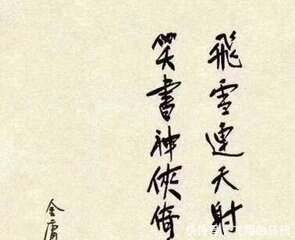 飛雪連天射
笑書神俠倚
金庸